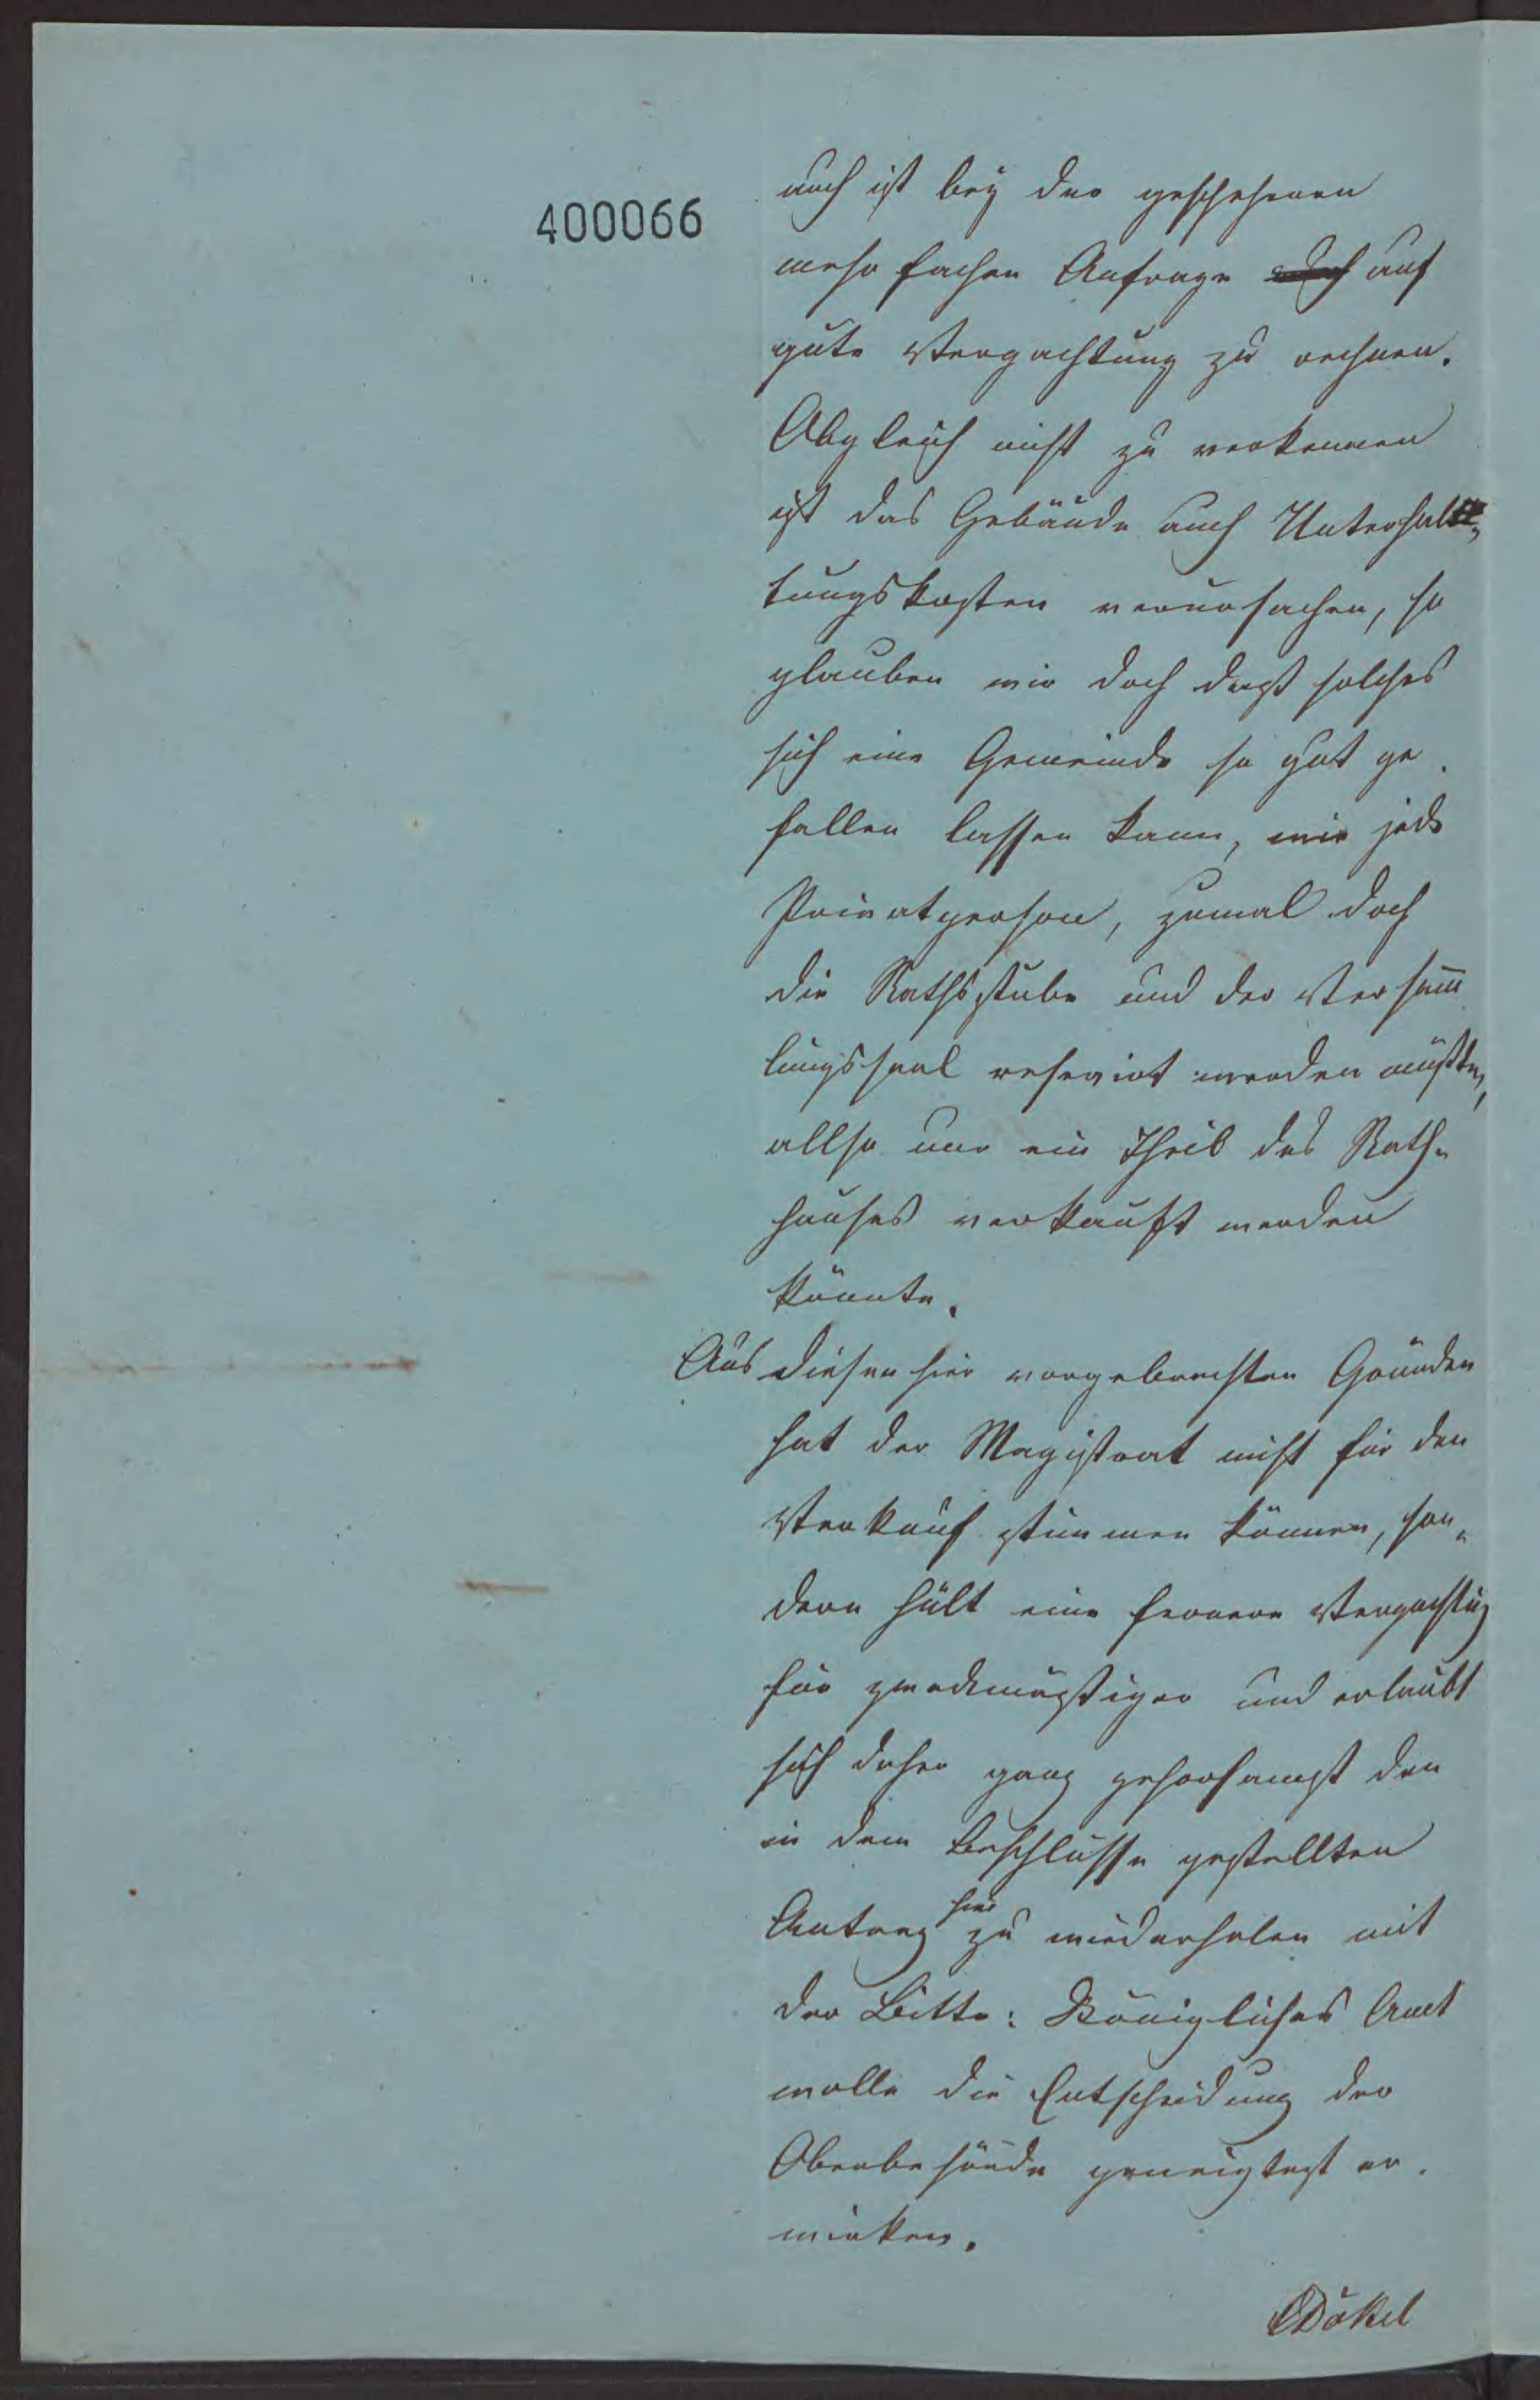 400066
auch ist bey der geschehenen
mehr fachen Anfrage auf
gute Verpachtung zu rechnen.
Obgleich nicht zu verkennen
ist das Gebäude auch Unterhal-
tungskosten verursachen, so
glauben wir doch daß solches
sich eine Gemeinde so gut ge-
fallen lassen kann, wie jede
Privatperson, zumal doch
die Rathsstube und der Versam̄
lungssaal reservirt werden müßten,
allso nur ein Theil des Rath-
hauses verkauft werden
könnte.
Aus diesen hier vorgebrachten Gründen
hat der Magistrat nicht für den
Verkauf stimmen können, son-
dern hält eine fernere Verpachtung
für zweckmäßiger und erlaubt
sich daher ganz gehorsamst den
in dem Beschlusse gestellten
Antrag hier zu wiederholen mit
der Bitte: Königliches Amt
wolle die Entscheidung der
Oberbehörde geneigtest er-
wirken.